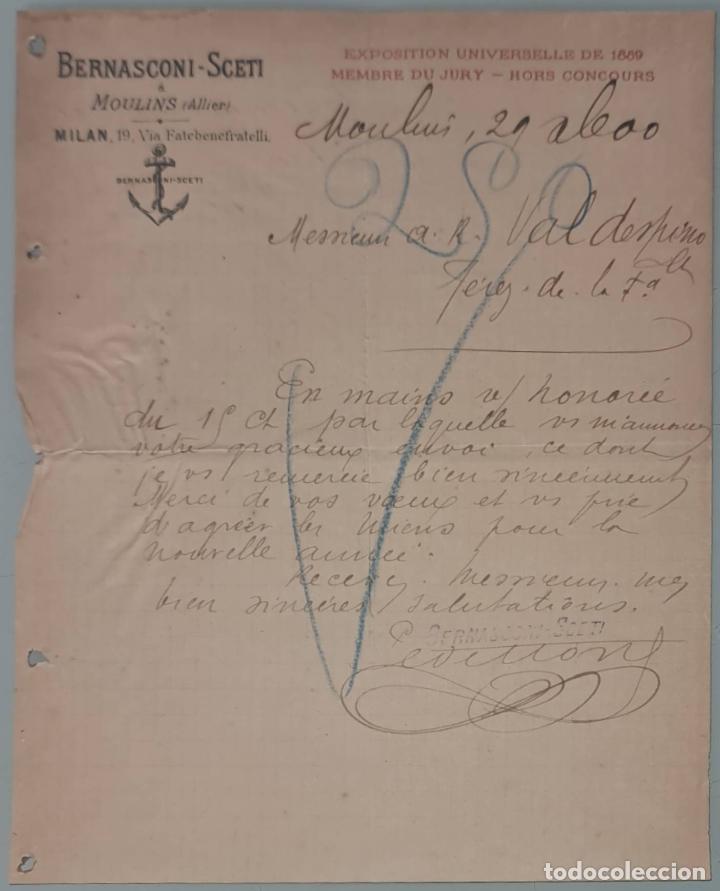 BERNASCONI-SCETI
à
MOULINS (Allier)
MILAN, 19, Via Fatebenefratelli.
BERNASCONI-SCETI
EXPOSITION UNIVERSELLE DE 1889
MEMBRE DU JURY — HORS CONCOURS
Moulins, 29 Xbe 00
Messieurs A. R. Valdespino
Jérez de la Fa
En mains v/ honorée
du 15 Ct par laquelle vs m'annoncez
votre gracieux envoi, ce dont
je vs remercie bien sincèrement
Merci de vos vœux et vs prie
d'agréer les miens pour la
nouvelle année.
Recevez, Messieurs, mes
bien sincères salutations.
P. BERNASCONI-SCETI
todocoleccion